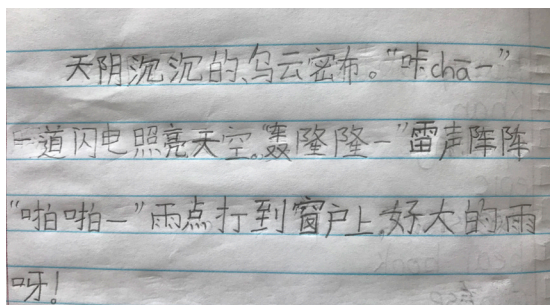 天阴沉沉的,乌云密布。“咔chā一”
一道闪电照亮天空。“轰隆隆一”雷声阵阵
“啪啪一”雨点打到窗户上,好大的雨
呀!